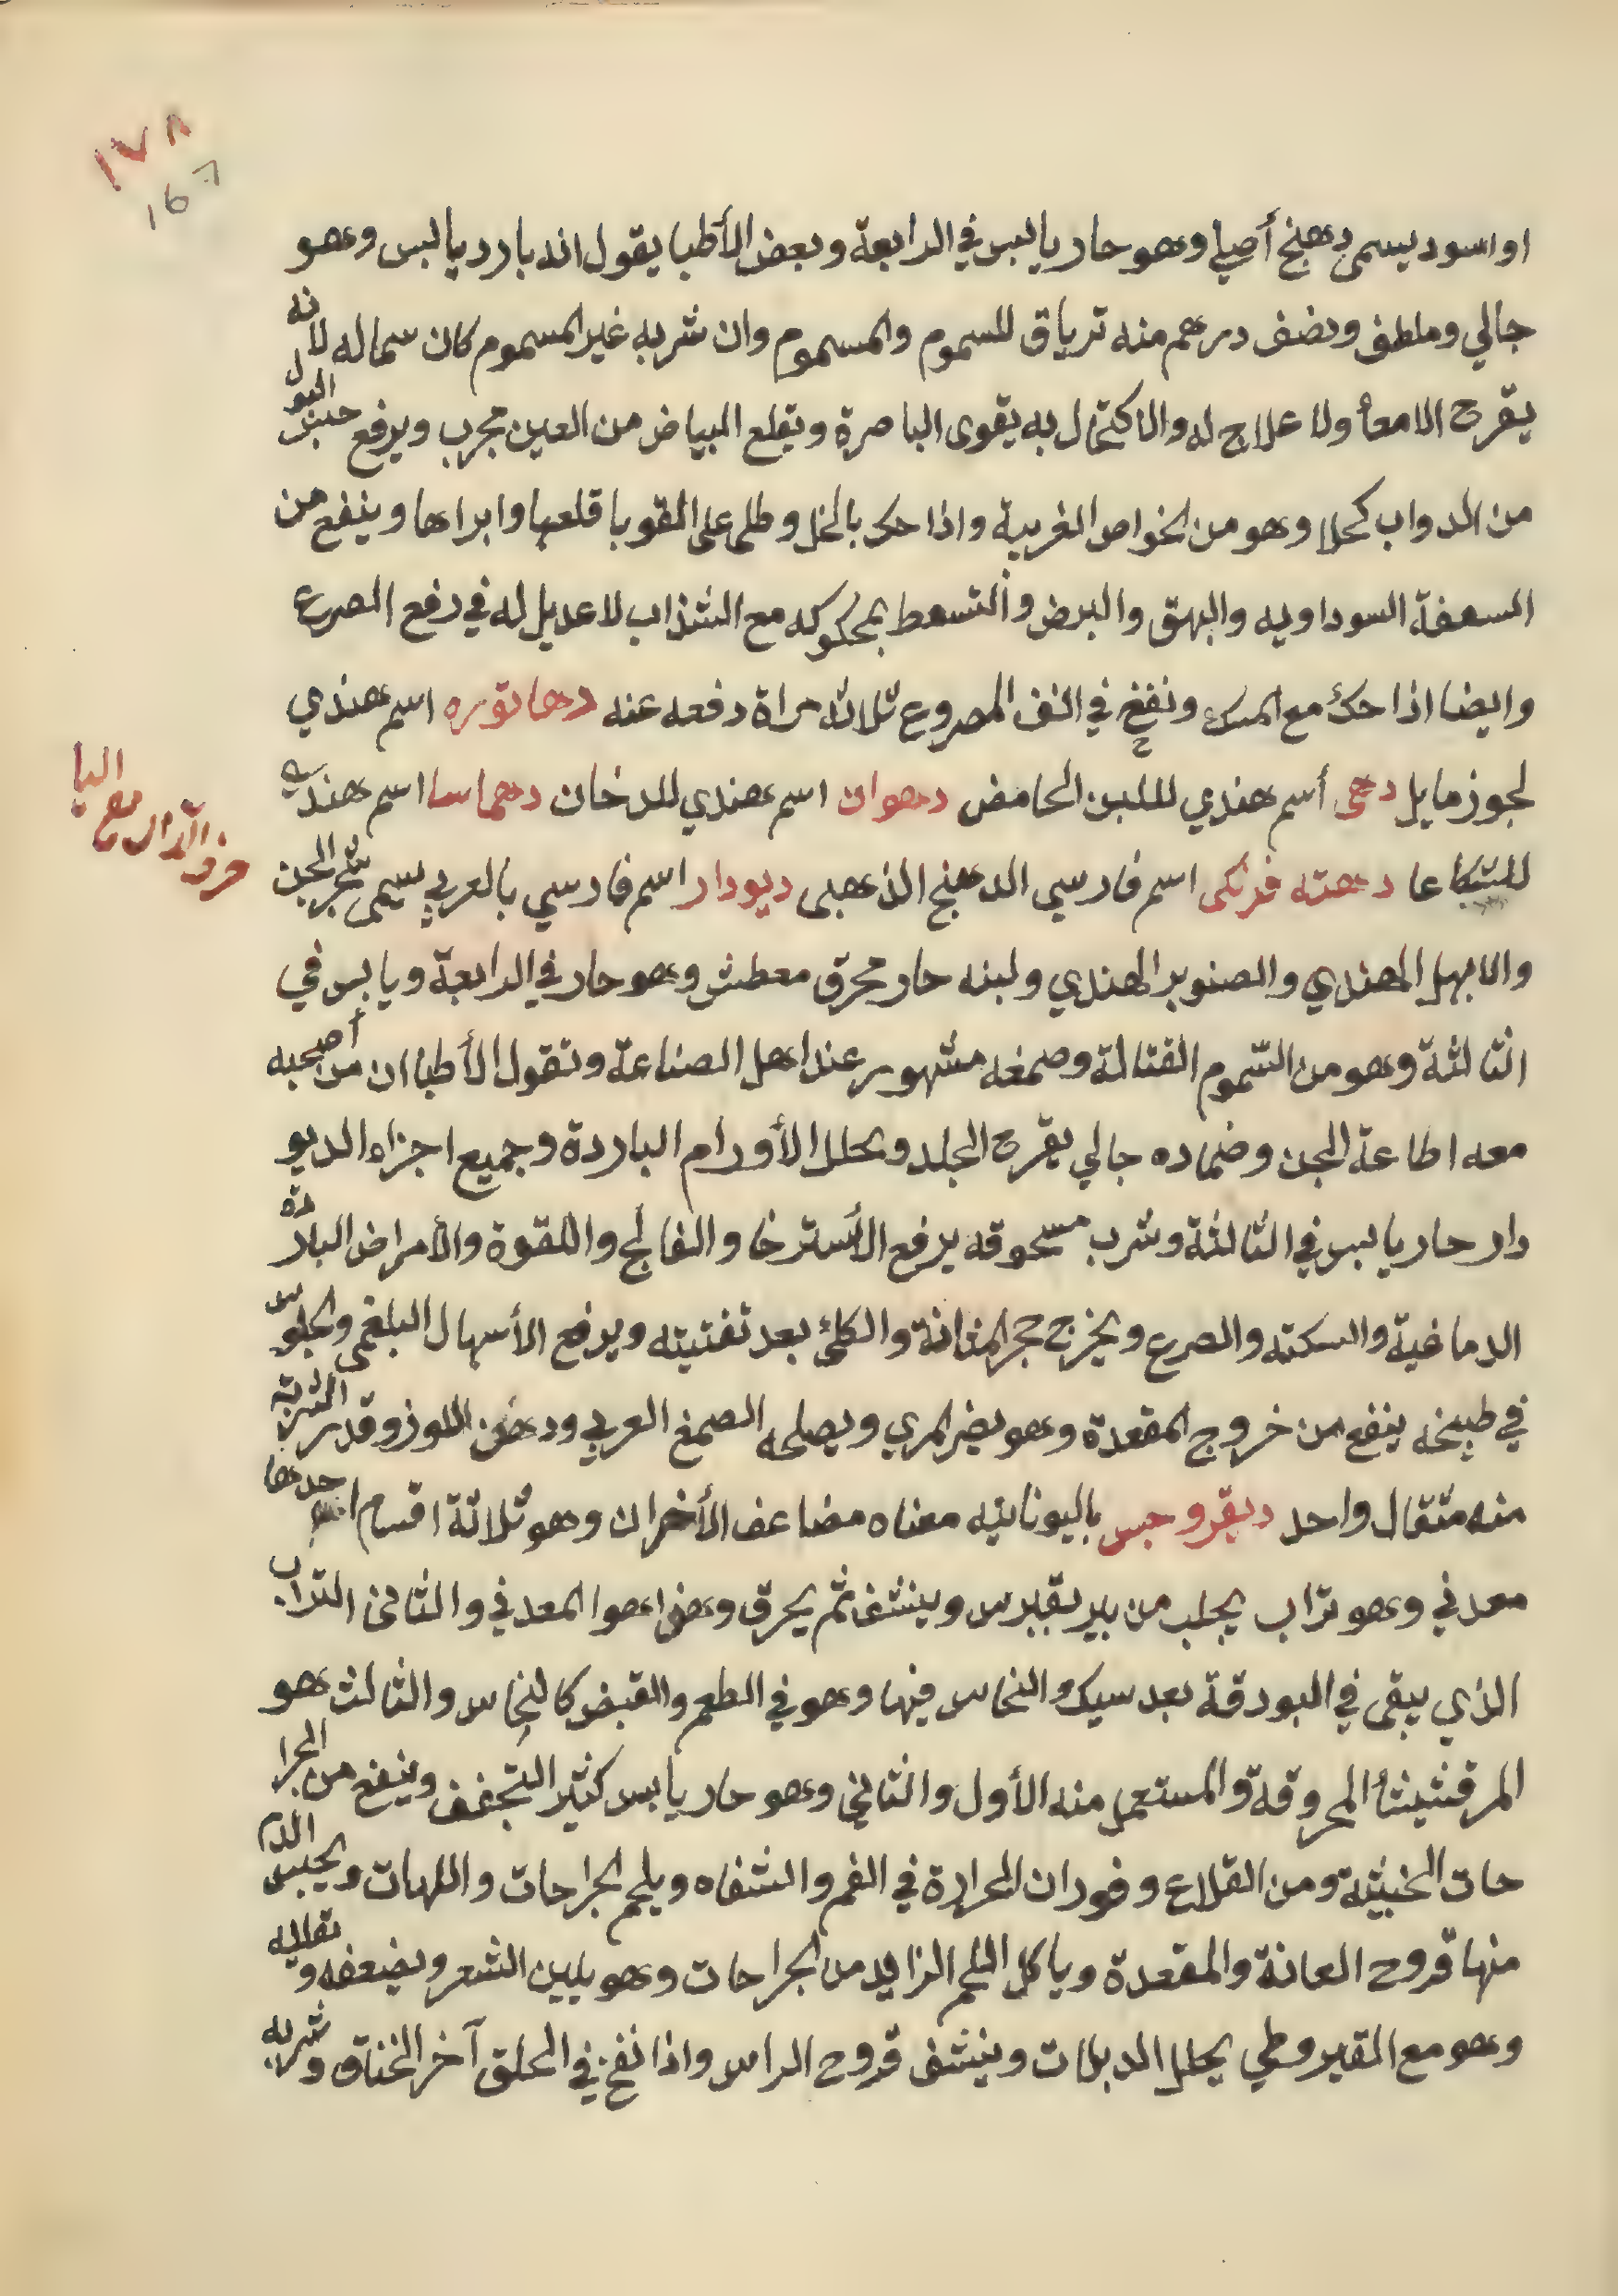 ١٧٨
١٦٦
او اسود يسمى دهنج أصيا وهو حار يابس في الرابعة وبعض الأطبا يقول انه بارد يابس وهو
جالي وملطف ونصف درهم منه ترياق للسموم والمسموم وان شربه غير المسموم كان سما له لانه
يقرح الامعأ ولا علاج له والاكتحال به يقوى الباصرة ويقلع البياض من العين مجرب ويرفع حبس البول
من الدواب كحلا وهو من الخواص الغريبة واذا حك بالخل وطلى على القوبا قلعها وابراها وينفع من
السعفة السوداويه والبهق والبرص والتسعط بمحكوكه مع الشذاب لا عديل له في رفع الصرع
وايضا اذا حك مع المسك ونفخ في انف المصروع ثلاثه مراة دفعه عنه دهاتوره اسم هندي
لجوز مايل دهى أسم هندي لللبن الحامض دهوان اسم هندي للدخان دهماسا اسم هنديه
للشكاعا دهنه فرنكى اسم فارسي الدهنج الذهبى ديودار اسم فارسي بالعربي يسمى شجر الجن
حرف الدال مع اليا
والابهل الهندي والصنوبر الهندي ولبنه حار محرق معطش وهو حار في الرابعة ويابس في
الثالثة وهو من السموم القتالة وصمغه مشهور عند اهل الصناعة وتقول الأطبا ان من أصحبه
معه اطاعة الجن وضماده جالي يقرح الجلد ويحلل الأورام الباردة وجميع اجزاه الديو
دار حار يابس في الثالثة وشرب مسحوقه يرفع الأسترخا والفالج واللقوة والأمراض الباردة
الدماغية والسكته والصرع ويخرج حجر المثانة والكلى بعد تفتيته ويرفع الأسهال البلغمى والجلوس
في طبيخه ينفع من خروج المقعدة وهو يضر المري ويصلحه الصمغ العربي ودهن اللوز وقدر الشربة
منه مثقال واحد ديقروجس باليونانيه معناه مضاعف الأخران وهو ثلاثة اقسام احدها
معدني وهو تراب يجلب من بير بقبرس وينشف ثم يحرق وهذا هوا المعدني والثاني التراب
الذي يبقى في البودقة بعد سيك والنحاس فيها وهو في الطعم والقبض كالنحاس والثالث هو
المرقشيثأ المحروقة والمستعمل منه الأول والثاني وهو حار يابس كثير التجفف وينفع من الجرا
حات الخبيثة ومن القلاع وفوران الحرارة في الفم والشفاه ويلحم الجراحات واللهات ويحبس الدم
منها قروح العانة والمقعدة وياكل اللحم الزايد من الجراحات وهو يلين الشعر ويضعفه وتقليله
وهو مع القيروطي يحلل الدبلات وينشف قروح الراس واذا نفخ في الحلق آخر الخناق وشربه